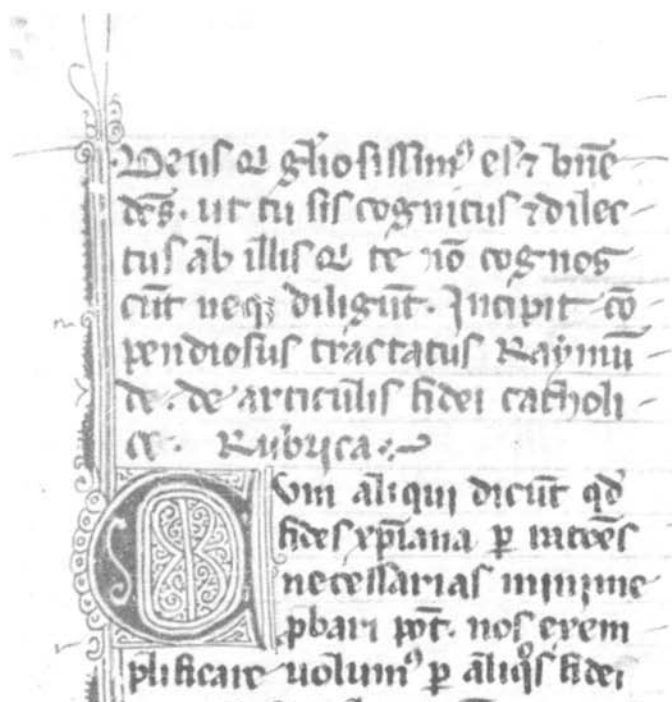 Deus q̄ gl̄iosissim⁹ es ⁊ bn̄e
dc̄s. ut tu sis cognitus ⁊ dilec
tus ab illis q̄ te nō cognos
cūt neqꝫ diligūt. Incipit cō
pendiosus tractatus Raymū
de. de articulis fidei catholi
ce. Rubrica
Cum aliqui dicūt qd̄
fides xp̄iana ꝑ
necessarias minime
ꝓbari pōt. nos exem
plificare uolum⁹ ꝑ aliq̊s fidei